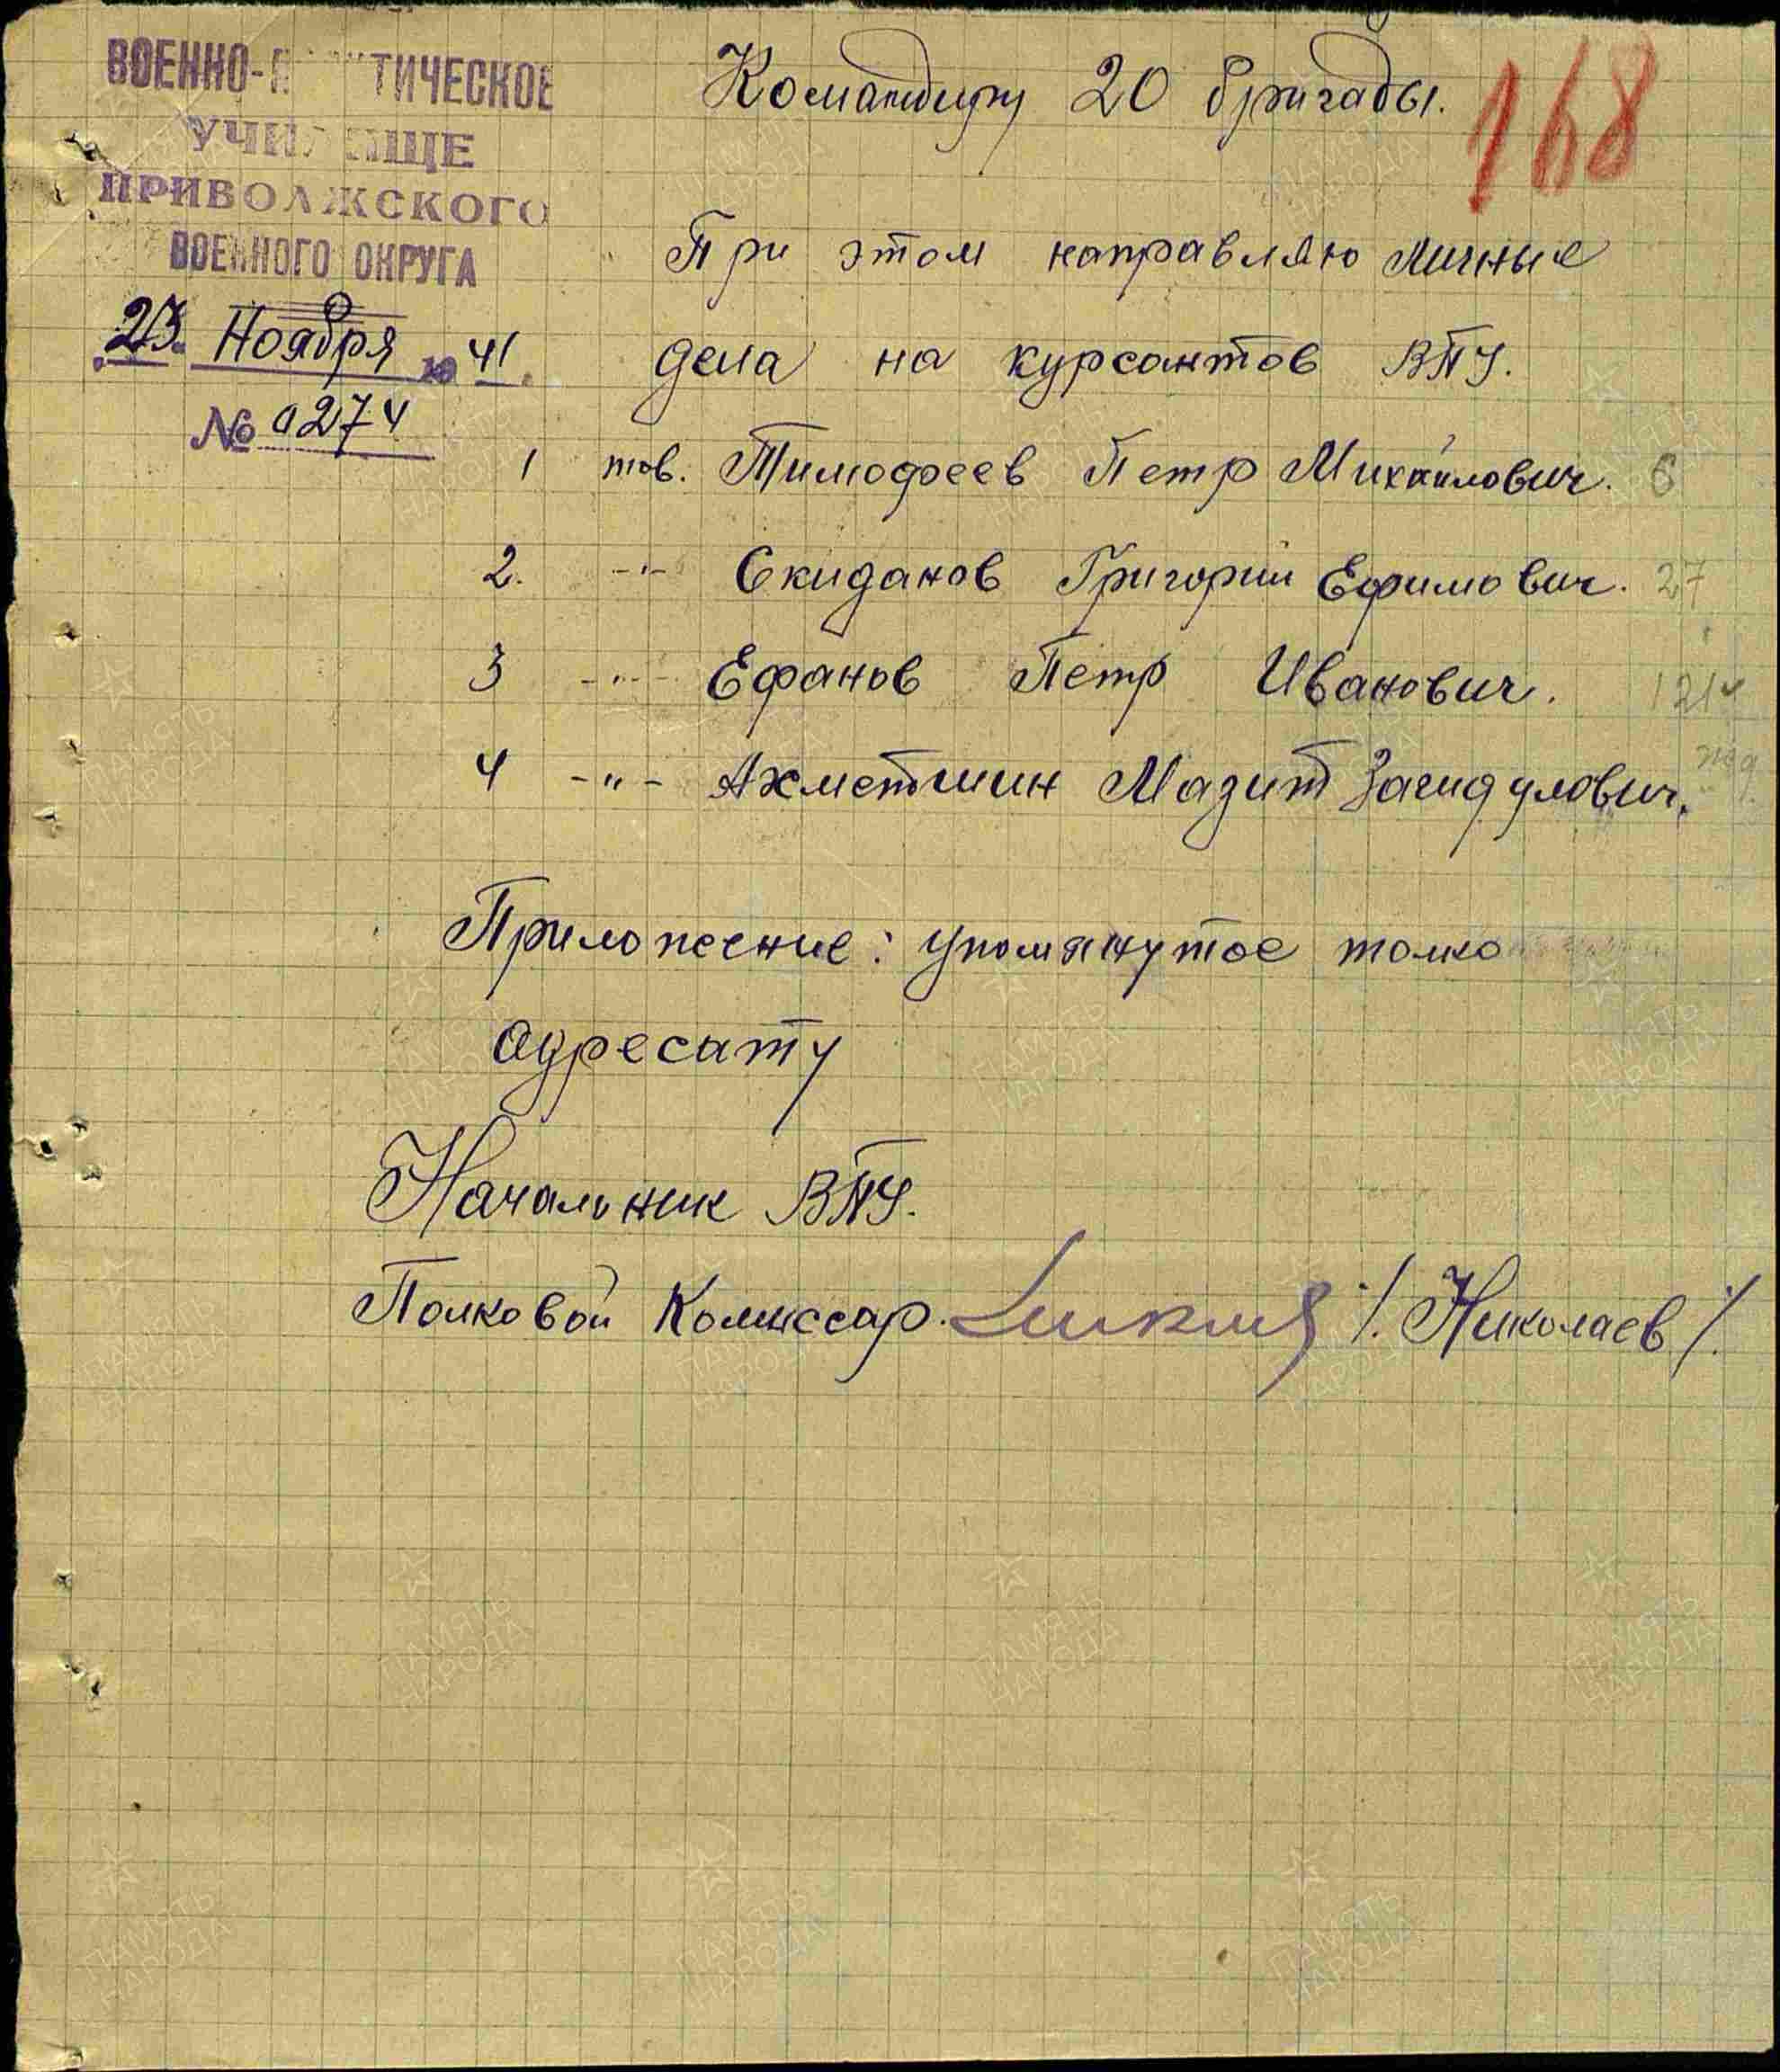 ВОЕННО-П ТИЧЕСКОЕ
УЧИЛИЩЕ
ПРИВОЛЖСКОГО
ВОЕННОГО ОКРУГА
23 Ноября 1941.
№ 0274
Командиру 20 бригады.
168
При этом направляю личные
дела на курсантов ВПУ.
1 тов. Тимофеев Петр Михайлович. 6
2. -"- Скиданов Григорий Ефимович. 27
3 -"- Ефанов Петр Иванович.
4 -"- Ахметшин Мазит Загидулович.
Приложение: упомянутое толко
адресату
Начальник ВПУ.
Полковой Комиссар. /. Николаев /.